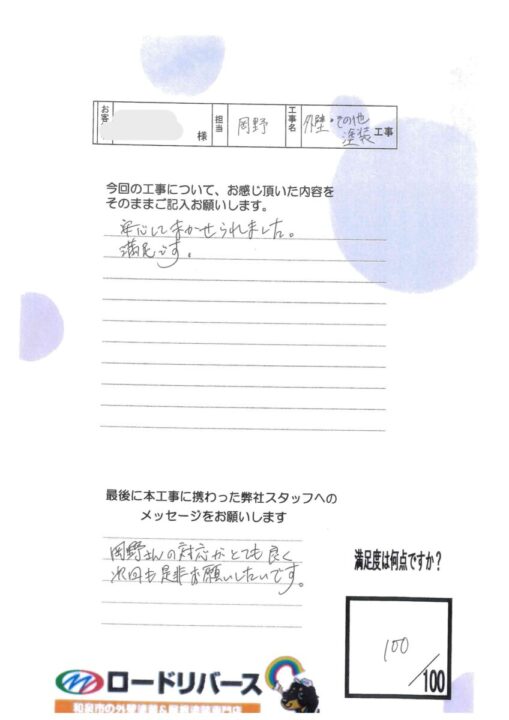 お客
様
担当
岡野
工事名
外壁・その他
塗装工事
今回の工事について、お感じ頂いた内容を
そのままご記入お願いします。
安心してまかせられました。
満足です。
最後に本工事に携わった弊社スタッフへの
メッセージをお願いします
岡野さんの対応がとても良く
次回も是非お願いしたいです。
満足度は何点ですか?
100
/100
ロードリバース
和泉市の外壁塗装&屋根塗装専門店